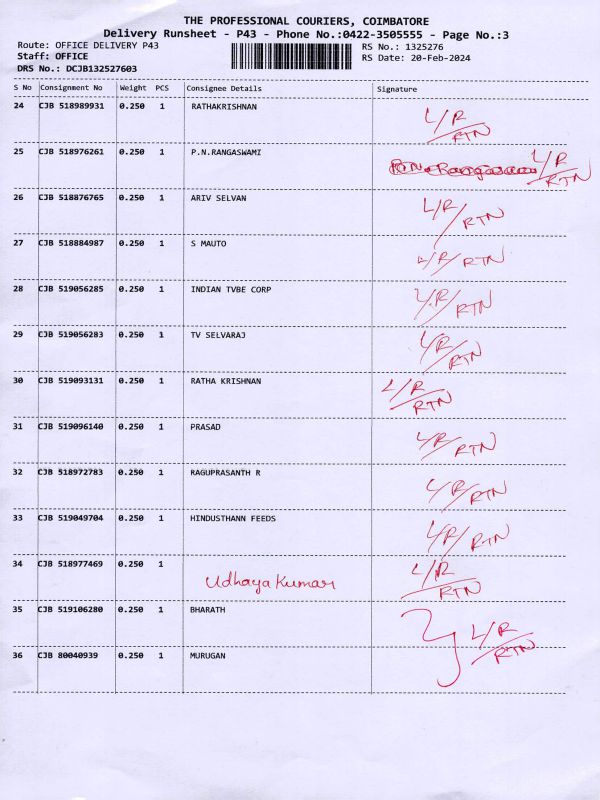 THE PROFESSIONAL COURIERS, COIMBATORE
Delivery Runsheet - P43 - Phone No.:0422-3505555 - Page No.:3
Route: OFFICE DELIVERY P43 RS No.: 1325276
Staff: OFFICE RS Date: 20-Feb-2024
DRS No.: DCJB132527603
S No Consignment No Weight PCS Consignee Details Signature
24 CJB 518989931 0.250 1 RATHAKRISHNAN L/R/RTN
25 CJB 518976261 0.250 1 P.N.RANGASWAMI L/R/RTN
26 CJB 518876765 0.250 1 ARIV SELVAN L/R/RTN
27 CJB 518884987 0.250 1 S MAUTO L/R/RTN
28 CJB 519056285 0.250 1 INDIAN TVBE CORP L/R/RTN
29 CJB 519056283 0.250 1 TV SELVARAJ L/R/RTN
30 CJB 519093131 0.250 1 RATHA KRISHNAN L/R/RTN
31 CJB 519096140 0.250 1 PRASAD L/R/RTN
32 CJB 518972783 0.250 1 RAGUPRASANTH R L/R/RTN
33 CJB 519049704 0.250 1 HINDUSTHANN FEEDS L/R/RTN
34 CJB 518977469 0.250 1 Udhaya Kumar L/R/RTN
35 CJB 519106280 0.250 1 BHARATH L/R/RTN
36 CJB 80040939 0.250 1 MURUGAN